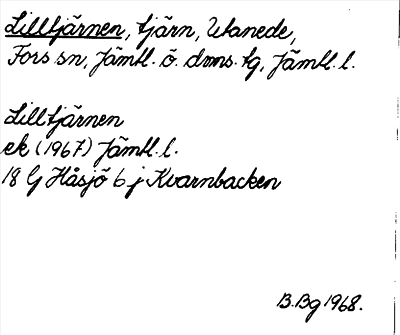 Lilltjärnen, tjärn, Utanede,
Fors sn, Jämtl. ö. dms. tg, Jämtl. l.
Lilltjärnen
ek (1967) Jämtl. l.
18 G Håsjö 6 j Kvarnbacken
B.Bg 1968.